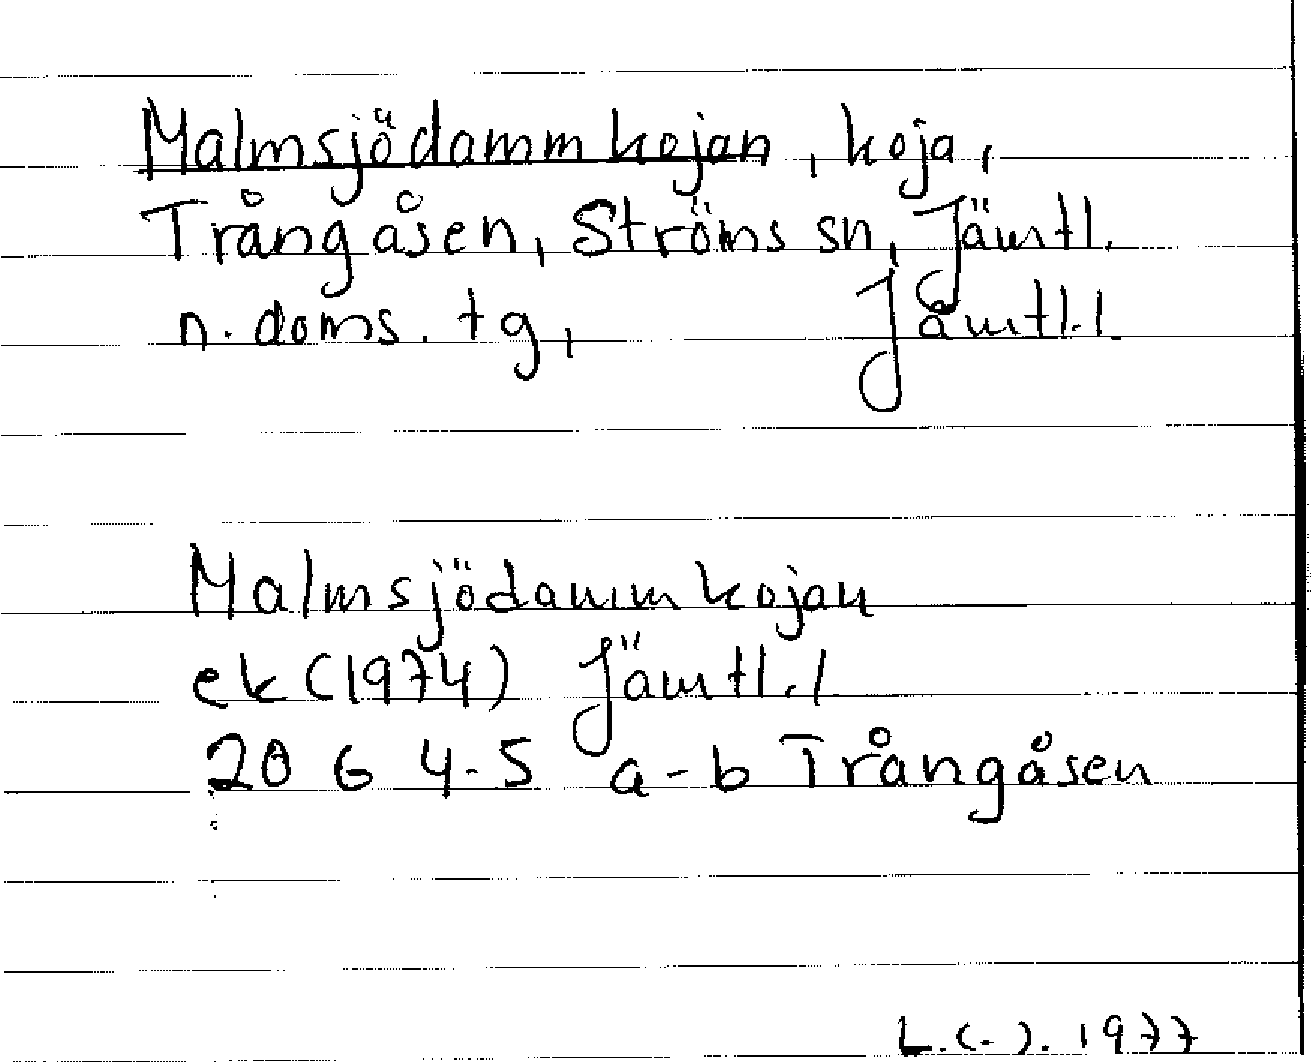 Malmsjödammkojan, koja,
Trångåsen, Ströms sn, Jämtl.
n. doms. tg, Jämtl.l
Malmsjödammkojan
ek (1974) Jämtl.l
20 G 4-5 a-b Trångåsen
1977